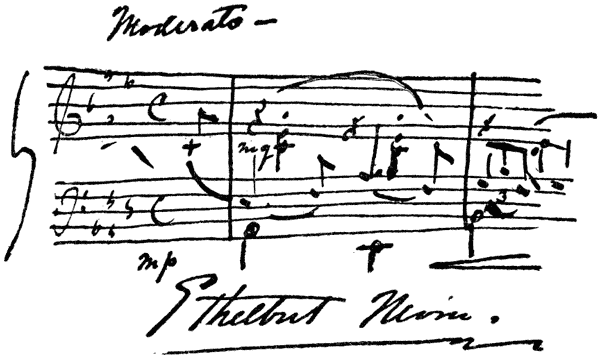 Moderato —
mg
3
mp
Ethelbert Nevin.